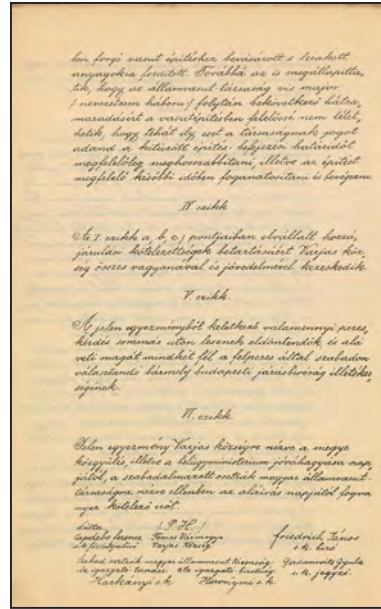 ben forgó vasut épitéshez bevásárolt s lerakott
anyagokra fordított. Továbbá az is megállapitta-
tik, hogy az államvasut társaság vis major
/: nevezetesen háború :/ folytán bekövetkező hátra-
maradásért a vasutépitésben felelőssé nem tétet-
hetik, hogy tehát ily eset a társaságnak jogot
adand a kitűzött épités-befejezési határidőt
megfelelőleg meghosszabbitani, illetve az épitést
megfelelő későbbi időben foganatositani és bevégezni
IV czikk
Az I. czikk a, b, c,) pontjaiban elvállalt hozzá-
járulási kötelezettségek betartásáért Varjas köz-
ség összes vagyonával és jövedelmével kezeskedik.
V. czikk.
A jelen egyezményből keletkező valamennyi peres
kérdés sommás uton lesznek eldöntendők és alá
veti magát mindkét fél a felperes által szabadon
választandó bármely budapesti járásbiróság illetékes-
ségének.
VI. czikk
Jelen egyezmény Varjas községre nézve a megye
közgyűlés, illetve a belügyministerium jóváhagyása nap-
jától, a szabadalmazott osztrák magyar államvasut-
társaságra nézve ellenben az aláirás napjától fogva
nyer kötelező erőt.
Látta
(P. H.)
Capdebo ferencz Temes Vármegye Friedrich János
s.k. Varjas Község s.k. biró
szabad. osztrák magyar államvasut társaság Gyula
az igazgató tanács az igazgató bizottság s.k. jegyző
Harkányi s.k. Hieronymi s.k.